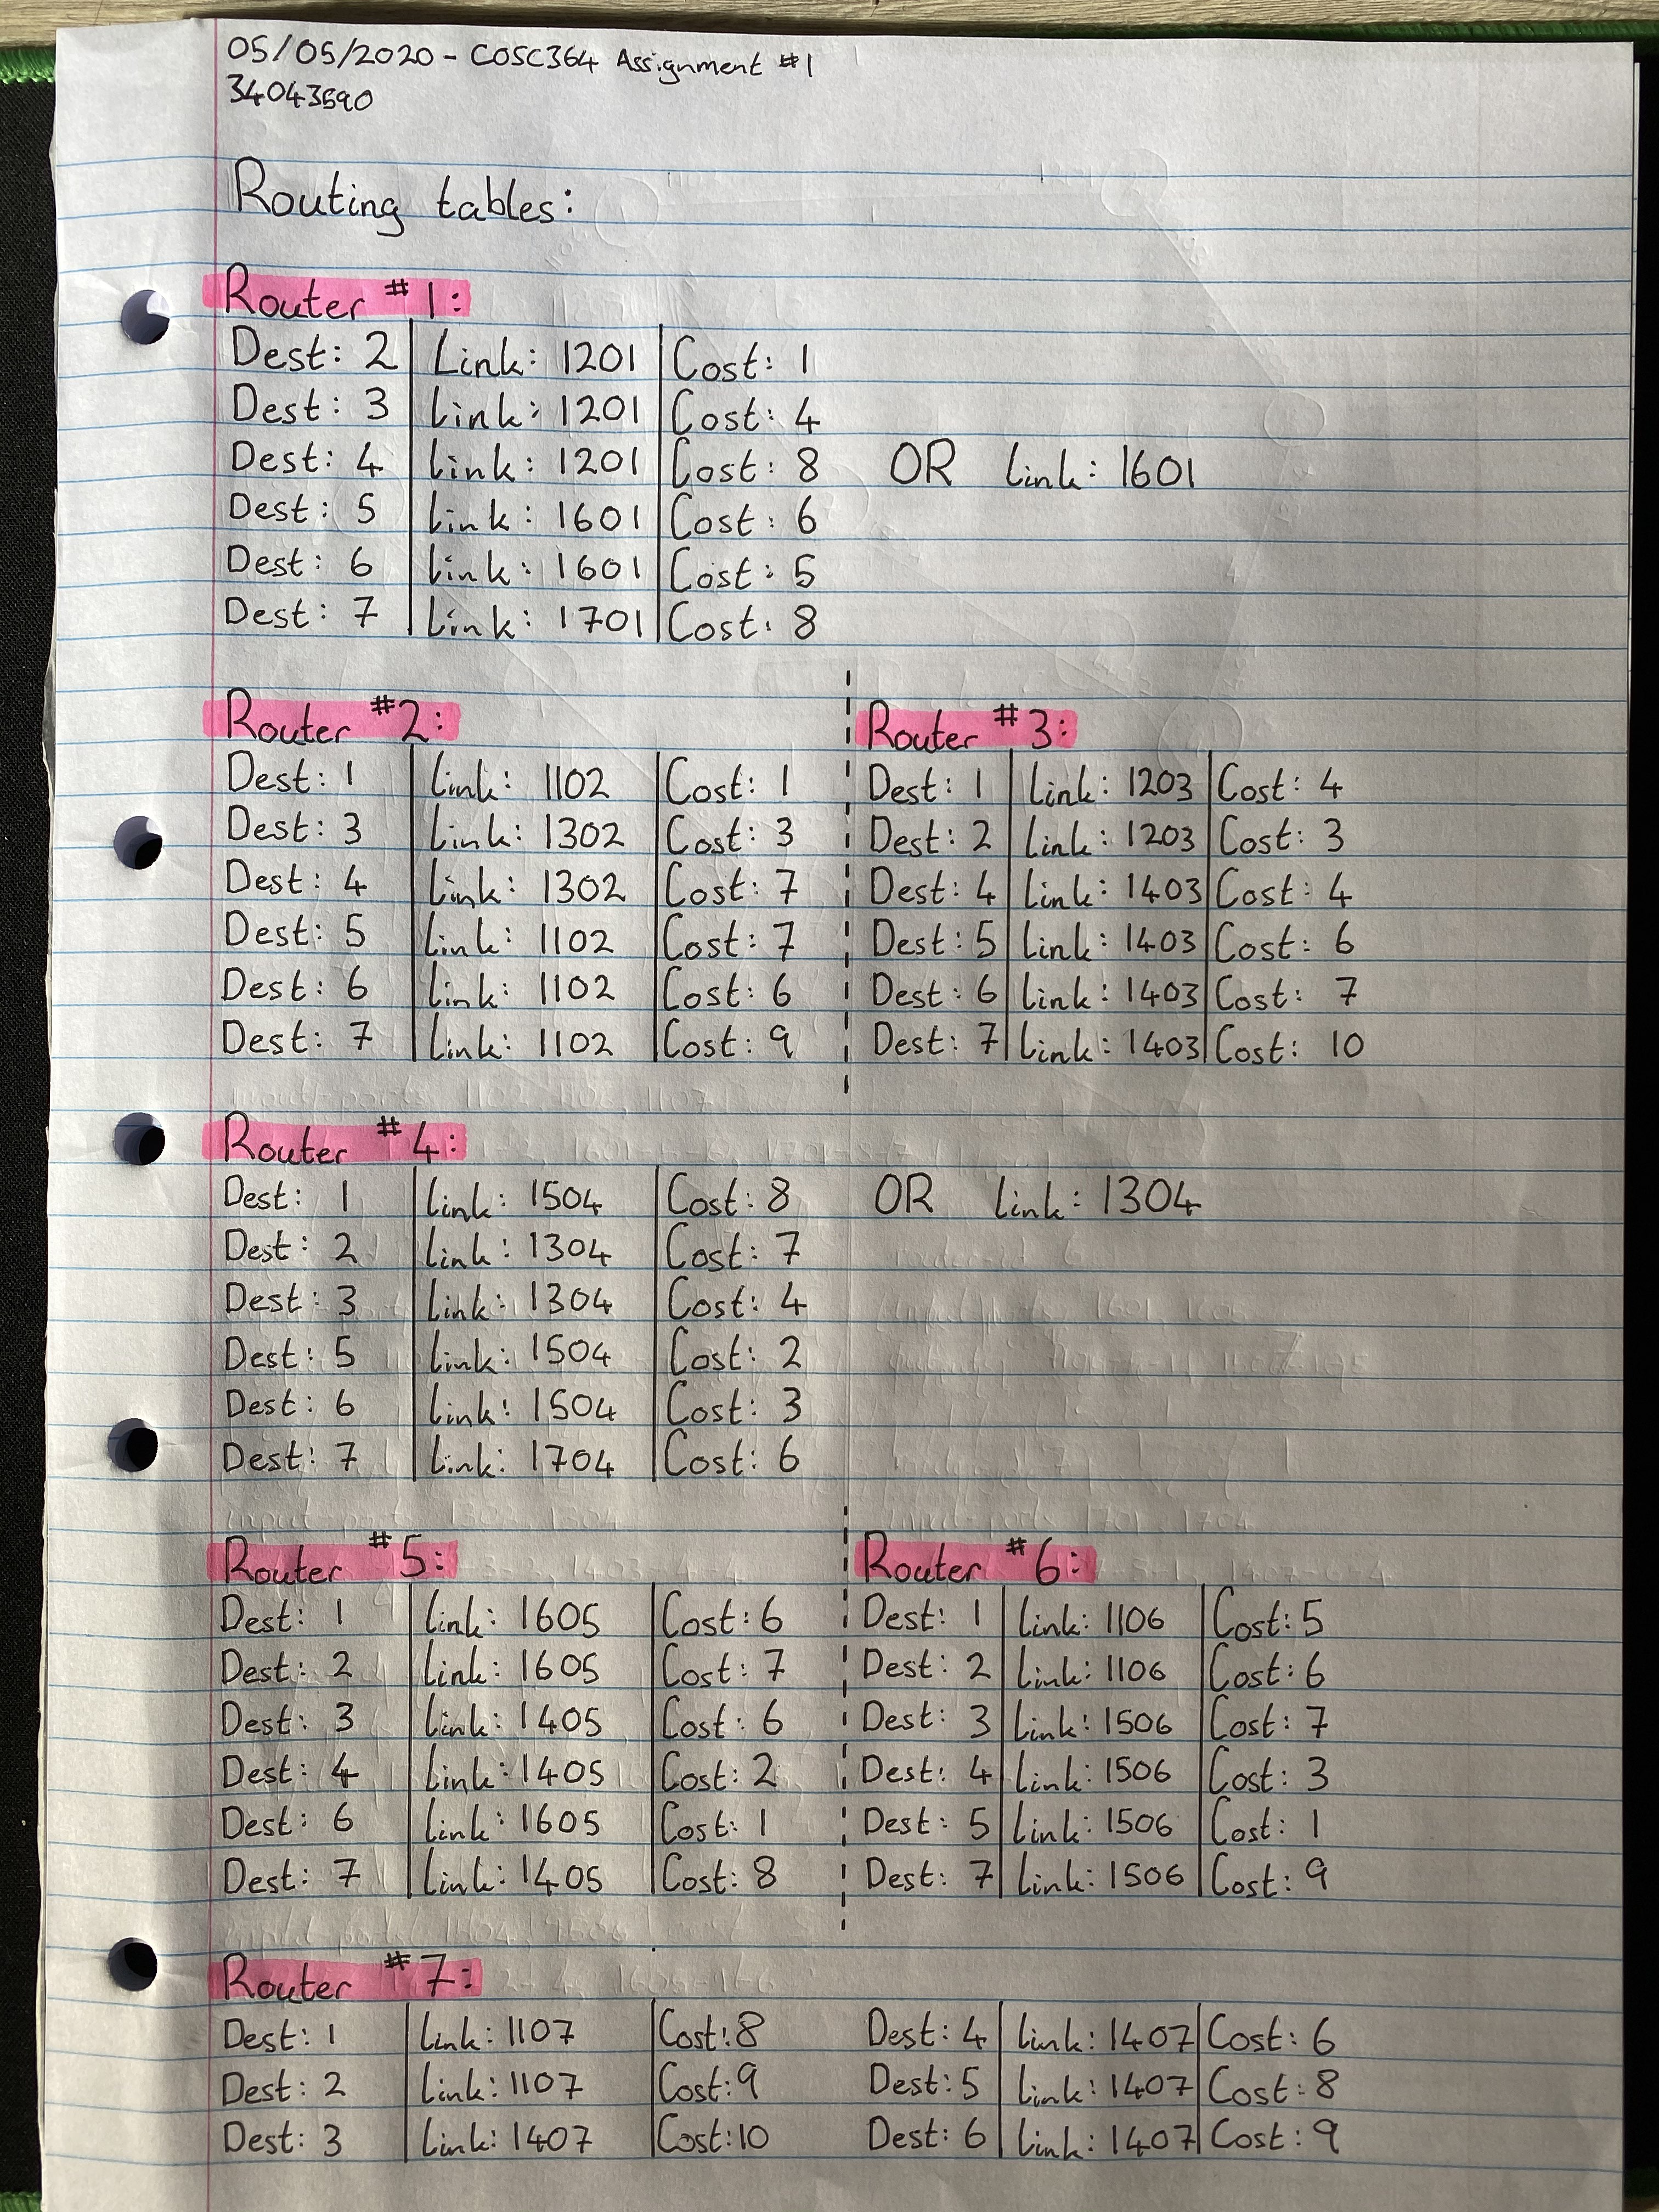 05/05/2020 - COSC364 Assignment #1
34043590
Routing tables:
Router #1:
Dest: 2 | Link: 1201 | Cost: 1
Dest: 3 | Link: 1201 | Cost: 4
Dest: 4 | Link: 1201 | Cost: 8 OR Link: 1601
Dest: 5 | Link: 1601 | Cost: 6
Dest: 6 | Link: 1601 | Cost: 5
Dest: 7 | Link: 1701 | Cost: 8
Router #2:
Dest: 1 | Link: 1102 | Cost: 1
Dest: 3 | Link: 1302 | Cost: 3
Dest: 4 | Link: 1302 | Cost: 7
Dest: 5 | Link: 1102 | Cost: 7
Dest: 6 | Link: 1102 | Cost: 6
Dest: 7 | Link: 1102 | Cost: 9
Router #3:
Dest: 1 | Link: 1203 | Cost: 4
Dest: 2 | Link: 1203 | Cost: 3
Dest: 4 | Link: 1403 | Cost: 4
Dest: 5 | Link: 1403 | Cost: 6
Dest: 6 | Link: 1403 | Cost: 7
Dest: 7 | Link: 1403 | Cost: 10
Router #4:
Dest: 1 | Link: 1504 | Cost: 8 OR Link: 1304
Dest: 2 | Link: 1304 | Cost: 7
Dest: 3 | Link: 1304 | Cost: 4
Dest: 5 | Link: 1504 | Cost: 2
Dest: 6 | Link: 1504 | Cost: 3
Dest: 7 | Link: 1704 | Cost: 6
Router #5:
Dest: 1 | Link: 1605 | Cost: 6
Dest: 2 | Link: 1605 | Cost: 7
Dest: 3 | Link: 1405 | Cost: 6
Dest: 4 | Link: 1405 | Cost: 2
Dest: 6 | Link: 1605 | Cost: 1
Dest: 7 | Link: 1405 | Cost: 8
Router #6:
Dest: 1 | Link: 1106 | Cost: 5
Dest: 2 | Link: 1106 | Cost: 6
Dest: 3 | Link: 1506 | Cost: 7
Dest: 4 | Link: 1506 | Cost: 3
Dest: 5 | Link: 1506 | Cost: 1
Dest: 7 | Link: 1506 | Cost: 9
Router #7:
Dest: 1 | Link: 1107 | Cost: 8
Dest: 2 | Link: 1107 | Cost: 9
Dest: 3 | Link: 1407 | Cost: 10
Dest: 4 | Link: 1407 | Cost: 6
Dest: 5 | Link: 1407 | Cost: 8
Dest: 6 | Link: 1407 | Cost: 9